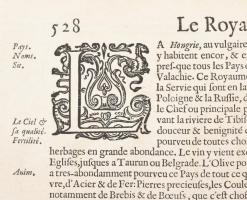 528
Le Roya
Pays.
Noms.
Sit.
Le Ciel &
sa qualité.
Fertilité.
Anim.
LA Hongrie, au vulgaire
y habitent encor, & e
pres-que tous les Pays d
Valachie. Ce Royaume
la Servie qui sont en la
Poloigne & la Russie, d
le Chef ou principale p
vant la riviere de Tibis
douceur & benignité d
pourveu de toutes choses
herbages en grande abondance. Le vin y vient exc
Eglises, jusques a Taurun ou Belgrade. L'Olive po
a tres-abondamment pourveu ce Pays de tout ce q
vre, d'Acier & de Fer: Pierres precieuses, les Coul
notamment de Brebis & de Bœufs, que c'est chos